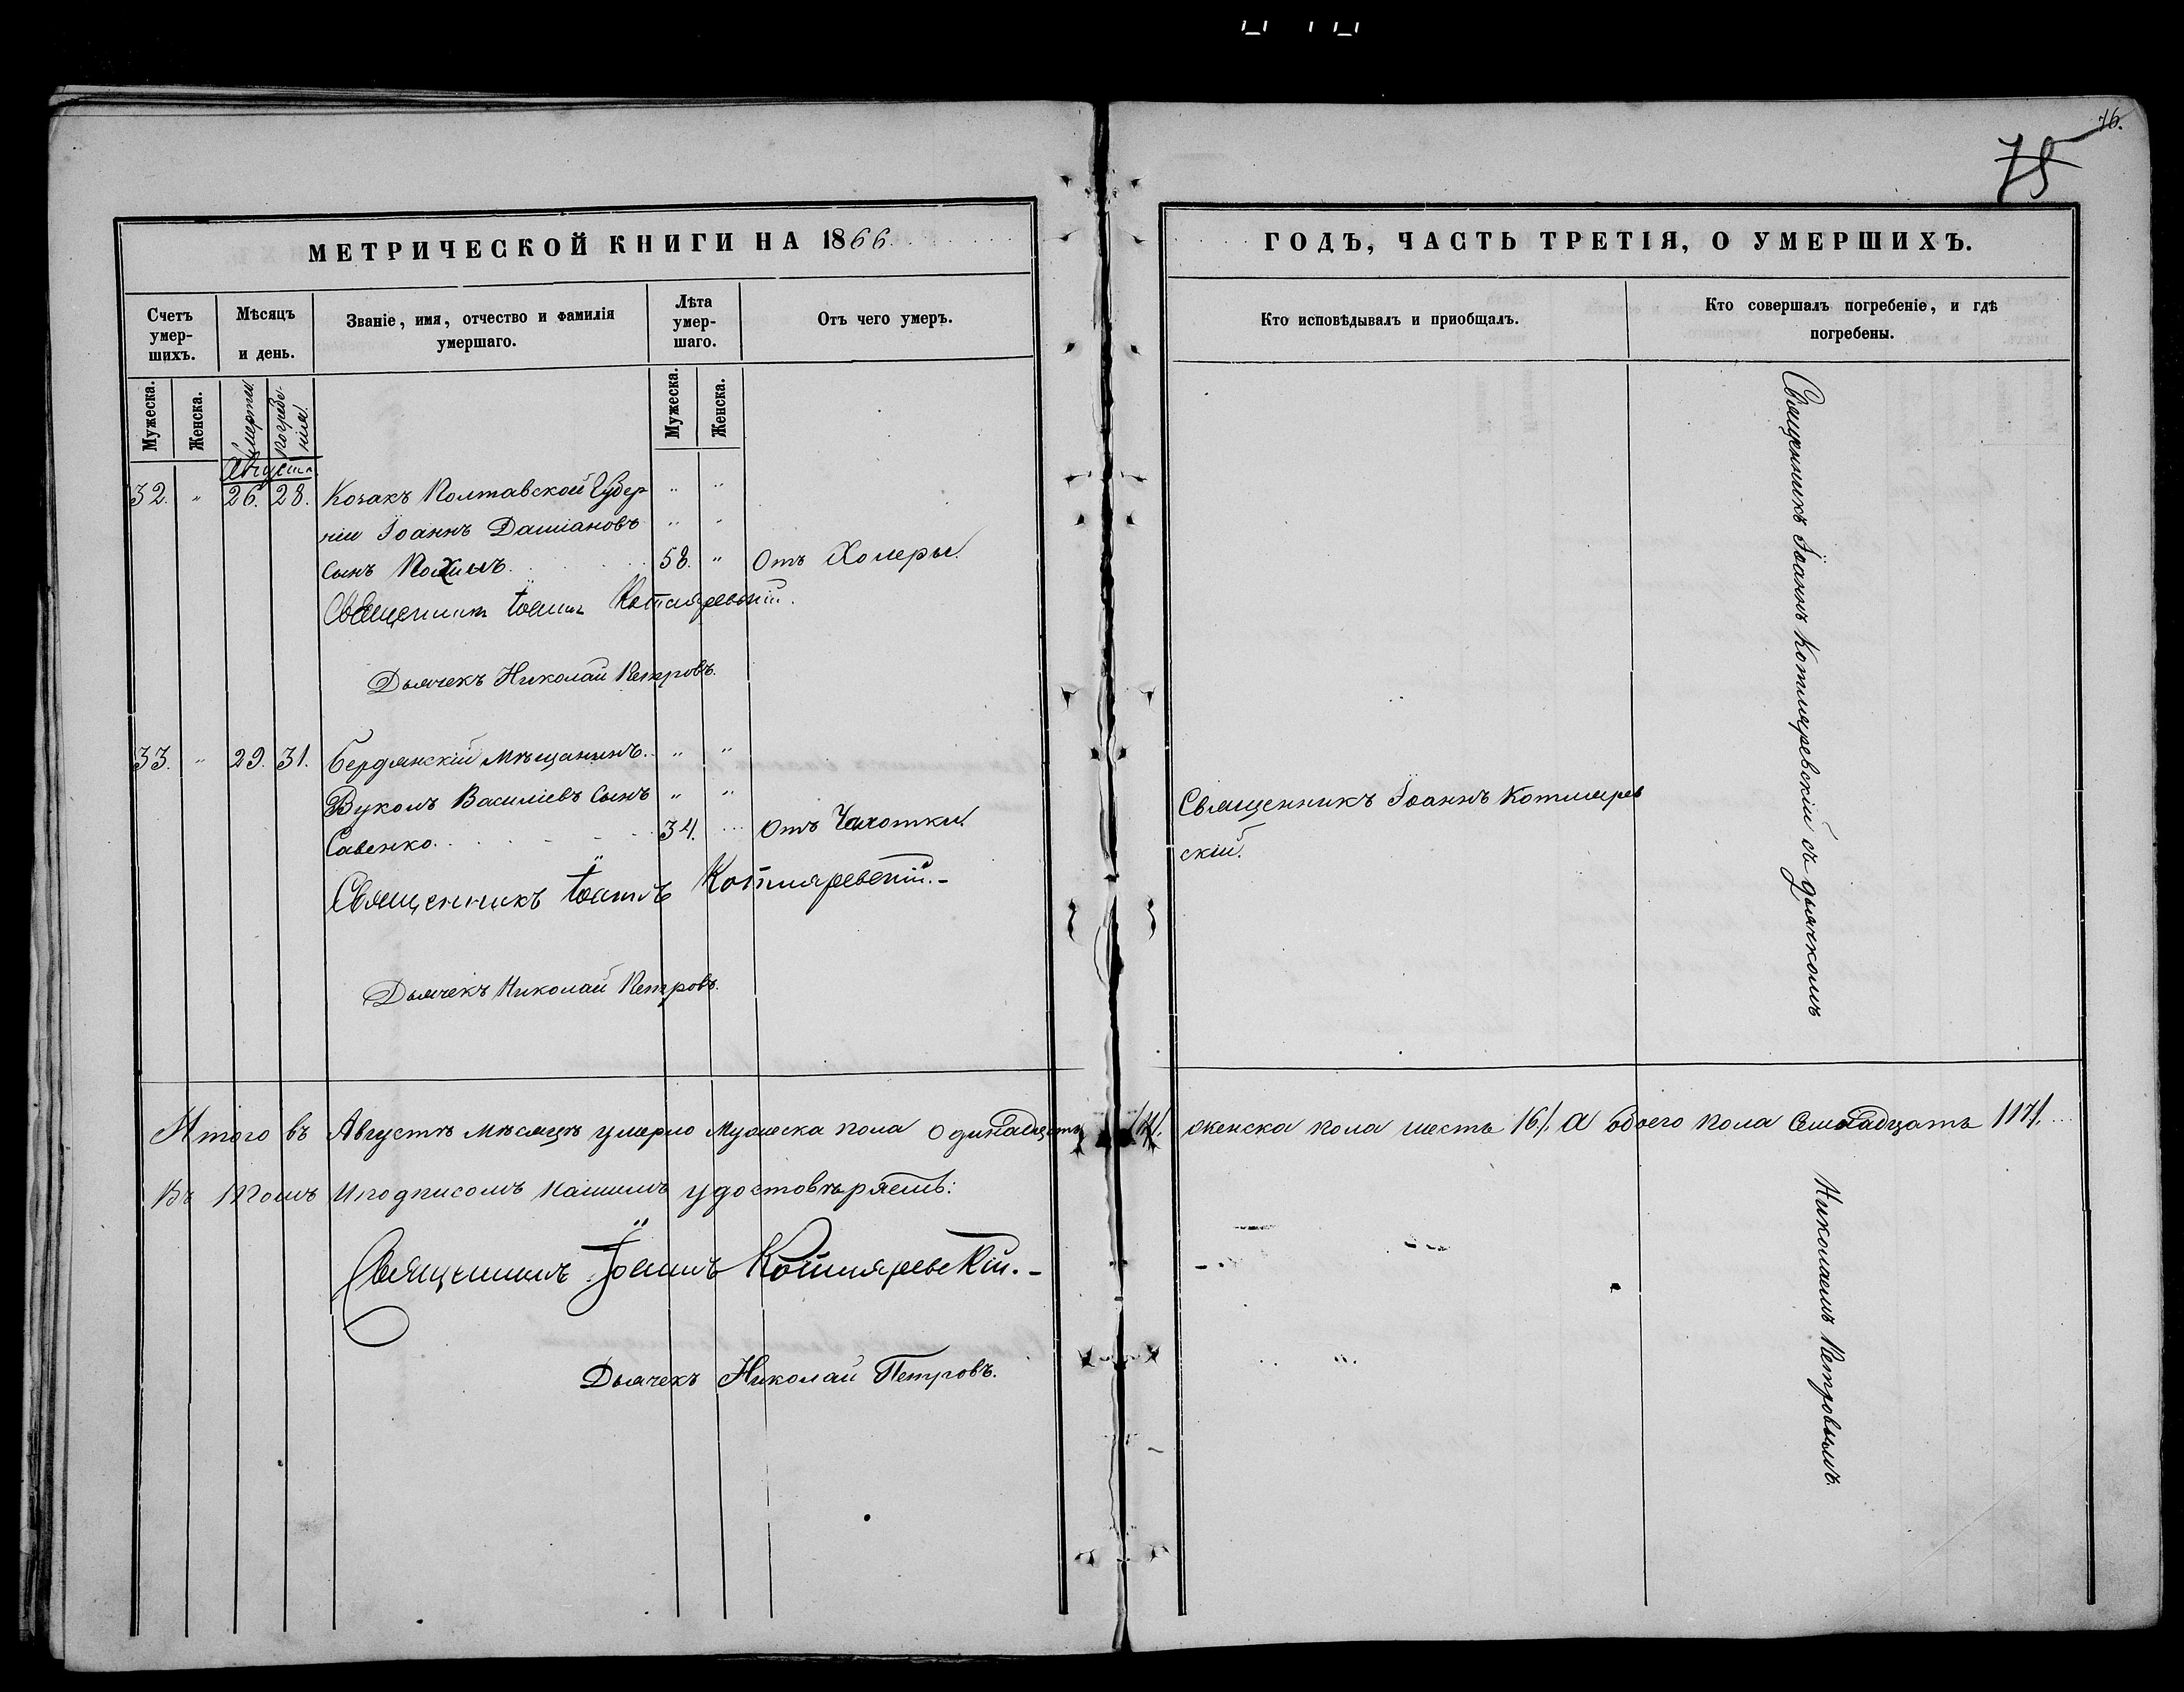 76.
75
МЕТРИЧЕСКОЙ КНИГИ НА 1866
ГОДЪ, ЧАСТЬ ТРЕТІЯ, О УМЕРШИХЪ.
Счетъ умер- шихъ.
Мѣсяцъ и день.
Званіе, имя, отчество и фамилія умершаго.
Лѣта умер- шаго.
Отъ чего умеръ.
Кто исповѣдывалъ и приобщалъ.
Кто совершалъ погребеніе, и гдѣ погребены.
Мужеска.
Женска.
Смерти
погребе-
нія
Мужеска.
Женска.
Августа.
32. " 26. 28. Козакъ Полтавской Губер " "
ніи Іоаннъ Даміановъ " "
сынъ 58. " Отъ Холеры.
Священникъ Іоаннъ Котляревскій.
Дьячекъ Николай Петровъ.
33. " 29. 31. Бердянскій мѣщанинъ. " "
Вуколъ Василіевъ сынъ " "
Савенко. 34. " Отъ Чахотки.
Священникъ Іоаннъ Котляревскій.-
Дьячекъ Николай Петровъ.
Священникъ Іоаннъ Котлярев
скій.
Священникъ Іоаннъ Котляревскій съ дьячкомъ
Николаемъ Петровымъ.
Итого въ Августѣ мѣсяцѣ умерло мужеска пола одинадцать /11/. женска пола шесть /6/. а обоего пола семнадцать /17/.
Въ томъ и подписомъ нашимъ удостовѣряемъ:
Священникъ Іоаннъ Котляревскій.-
Дьячекъ Николай Петровъ.